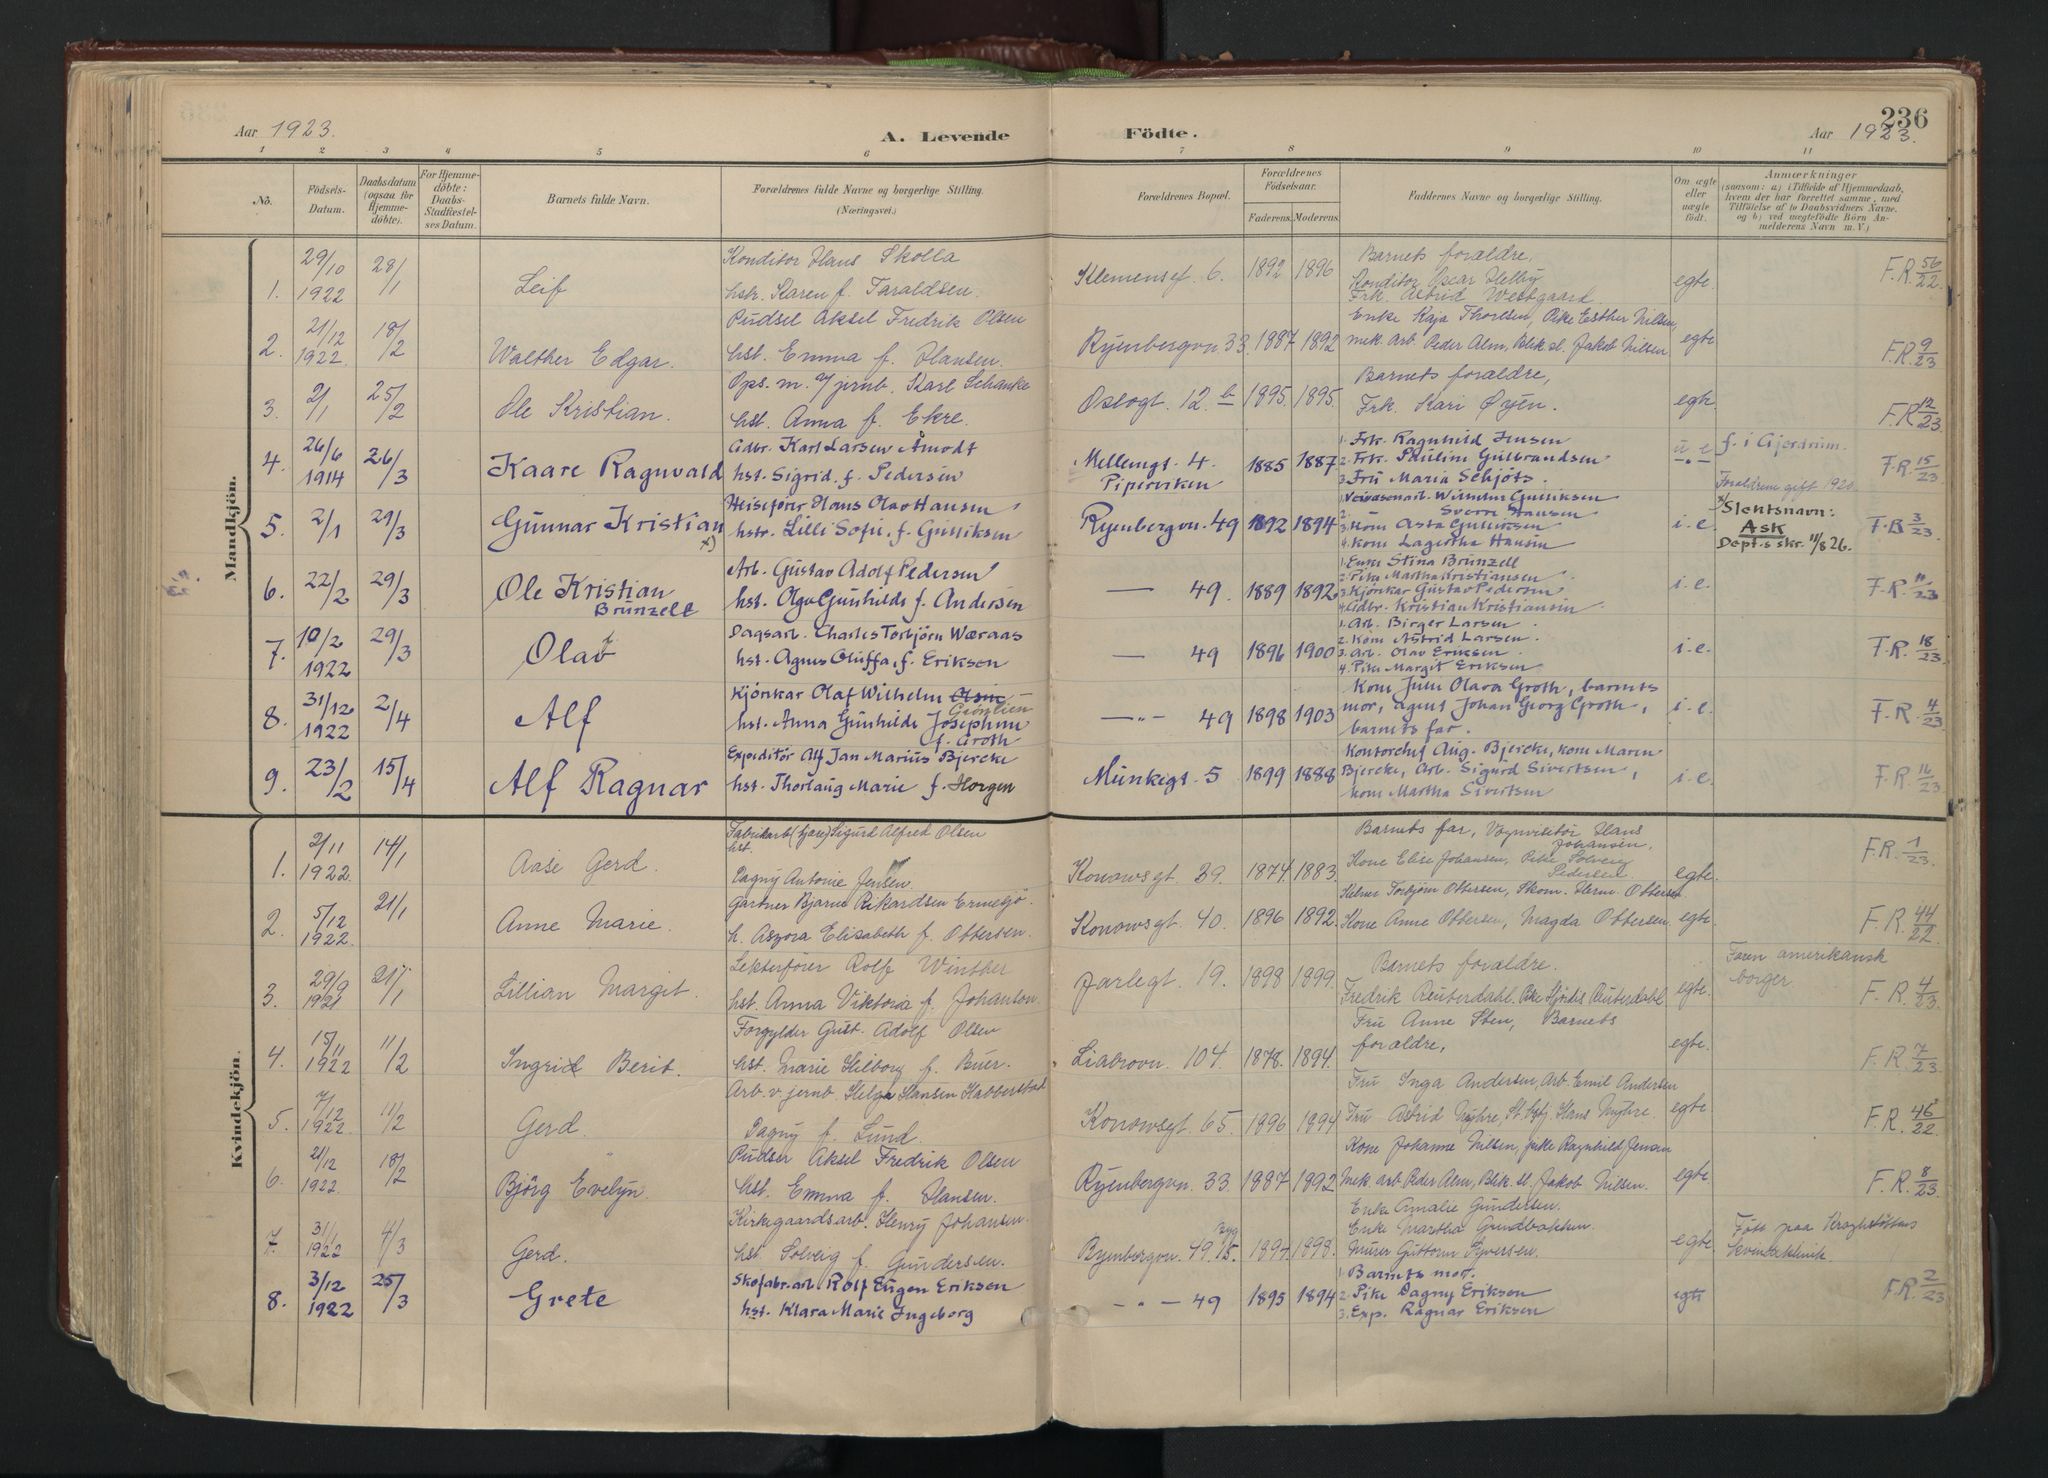 236
Aar 1923.
A. Levende
Födte.
Aar 1923.
1 2 3 4 5 6 7 8 9 10 11
No.
Födsels-Datum.
Daabsdatum (ogsaa for Hjemmedöbte).
For Hjemmedöbte: Daabs-Stadfæstelses Datum.
Barnets fulde Navn.
Forældrenes fulde Navne og borgerlige Stilling. (Næringsvei.)
Forældrenes Bopæl.
Forældrenes Födselsaar.
Faderens. Moderens.
Faddernes Navne og borgerlige Stilling.
Om ægte eller uægte födt.
Anmærkninger
(saasom: a) i Tilfælde af Hjemmedaab, hvem der har forrettet samme, med Tilföielse af to Daabsvidners Navne. og b) ved uægtefödte Börn Anmelderens Navn m. V.)
Mandkjön.
1. 29/10 1922 28/1 Leif
Konditor Hans Skolla
hstr. Karen f. Taraldsen.
Klemensgt. 6. 1892 1896
Barnets forældre,
Konditor Oscar Helby
Frk. Astrid Westgaard.
egte. F.R. 56/22
2. 21/12 1922. 18/2 Walther Edgar.
Pudser Aksel Fredrik Olsen
hst. Emma f. Hansen.
Ryenbergvn 33. 1887 1892
Enke Kaja Thoresen, Pike Esther Nilsen,
mek. arb Peder Alm, Blik.sl. Jakob Nilsen
egte F.R. 9/23
3. 2/1 25/2 Ole Kristian.
Ops. m. v/ jernb. Karl Schanke
hst. Anna f. Ekre.
Oslogt. 12 b 1895. 1895.
Barnets forældre,
Frk. Kari Øyen.
egte. F.R. 12/23.
4. 26/6 1914 26/3 Kaare Ragnvald
Gdbr. Karl Larsen Åmodt
hst. Sigrid f. Pedersen
Mellemgt. 4.
Piperviken
1885 1887
1. Frk. Ragnhild Jensen
2. Frk. Pauline Gulbrandsen
3. Fru Maria Schjöts.
u. e. f. i Gjerdrum.
Forældrene gift 1920.
F.R. 15/23
5. 2/1 29/3 Gunnar Kristian x)
Heisefører Hans Olav Hansen
hstr. Lilli Sofie f. Gulliksen
Ryenbergvn. 49 1892 1894
1. Wilhelm Gulliksen
2. Sverre Hansen
3. Kone Asta Gulliksen
4. Kone Lagertha Hansen
i. e.
x) Slektsnavn:
Ask
Dept.s skr. 11/8 26.
F.B 3/23.
6. 22/2 29/3 Ole Kristian
Brunzell
Arb. Gustav Adolf Pedersen
hst. Olga Gunhilde f. Andersen
— 49. 1889 1892
1. Enke Stina Brunzell
2. Pike Martha Kristiansen
3. Kjörekar Gustav Pedersen
4. Gdbr. Kristian Kristiansen
i. e. F.R. 11/23
7. 10/2 1922 29/3 Olav
Dagsarb. Charles Torbjörn Wæraas
hst. Agnes Oluffa, f. Eriksen
— 49 1896 1900
1. Arb. Birger Larsen
2. Kone Astrid Larsen.
3. Arb. Olav Eriksen
4. Pike Margit Eriksen
i. e. F.R. 18/23.
8. 31/12 1922 2/4 Alf
Kjörekar Olaf Wilhelm Olsen
Grönlien
hst. Anna Gunhilde Josephine
f. Groth
—"— 49 1898 1903
Kone Julie Olava Groth, barnets
mor, agent Johan Georg Groth,
barnets far.
i. e. F.R. 4/23
9. 23/2 15/4 Alf Ragnar
Expeditör Alf Jan Marius Bjercke
hst. Thorlaug Marie f. Horgen
Munkegt. 5 1899 1888
Kontorchef Aug. Bjercke, kone Maren
Bjercke, Arb. Sigurd Sivertsen,
kone Martha Sivertsen
i. e. F.R. 16/23
Kvindekjön.
1. 2/11 1922. 14/1 Aase Gerd.
Fabrikarb. Sigurd Alfred Olsen
hst.
Dagny Antonie Jensen.
Konowsgt. 39. 1874. 1883.
Barnets far, Vognvisitør Hans
Johansen,
Kone Elise Johansen, Pike Solveig
Pedersen
egte. F.R. 1/23.
2. 5/12 1922. 21/1 Anne Marie.
Gartner Bjarne Rikardsen Ermesjö.
h. Aszora Elisabeth f. Ottersen.
Konowsgt. 40. 1896 1892.
Torbjörn Ottersen, Skom. Herm. Ottersen
Kone Anne Ottersen, Magda Ottersen.
egte. F.R. 44/22.
3. 29/9 1921 21/1 Lillian Margit.
Lekterfører Rolf Winther
hst. Anna Viktoria f. Johanson.
Jarlegt. 19. 1898 1899.
Barnets forældre.
Fredrik Reuterdahl, Pike Hjördis Reuterdahl
egte.
Faren amerikansk
borger.
F.R. 4/23.
4. 15/11 1922 11/2 Ingrid Berit.
Forgylder Gust. Adolf Olsen
hst. Marie Hilborg f. Buer.
Liabrovn. 104. 1878. 1894.
Fru Anne Sten, Barnets
forældre,
egte. F.R. 7/23.
5. 7/12 1922. 11/2 Gerd.
Arb. v. jernb. Helge Hansen Habberstad
Dagny f. Lund.
Konowsgt. 65. 1896 1894
Fru Inga Andersen, Arb. Emil Andersen
Fru Astrid Myhre, Hans Myhre.
egte F.R. 46/22
6. 21/12 1922. 18/2 Björg Evelyn.
Pudser Aksel Fredrik Olsen
hst. Emma f. Hansen.
Ryenbergvn. 33. 1887 1892
Kone Johanne Nilsen, pike Ragnhild Jensen
Mek arb. Peder Alm, Blik.sl. Jakob Nilsen.
egte. F.R. 8/23.
7. 31/1 1922 4/3 Gerd.
Kirkegaardsarb. Henry Johansen.
hst. Solveig f. Gundersen.
Ryenbergvn. 49 1897 1898.
Enke Amalie Gundersen.
Enke Martha Grundbakken.
Murer Guttorm Syversen.
egte.
Født paa Kraghstöttens
kvindeklinik
8. 3/12 1922 25/3 Grete
Skofabr.arb. Rolf Eugen Eriksen
hst. Klara Marie Ingeborg
—"— 49 1895 1894
1. Barnets mor.
2. Pike Dagny Eriksen
3. Exp. Ragnar Eriksen
egte F.R. 2/23